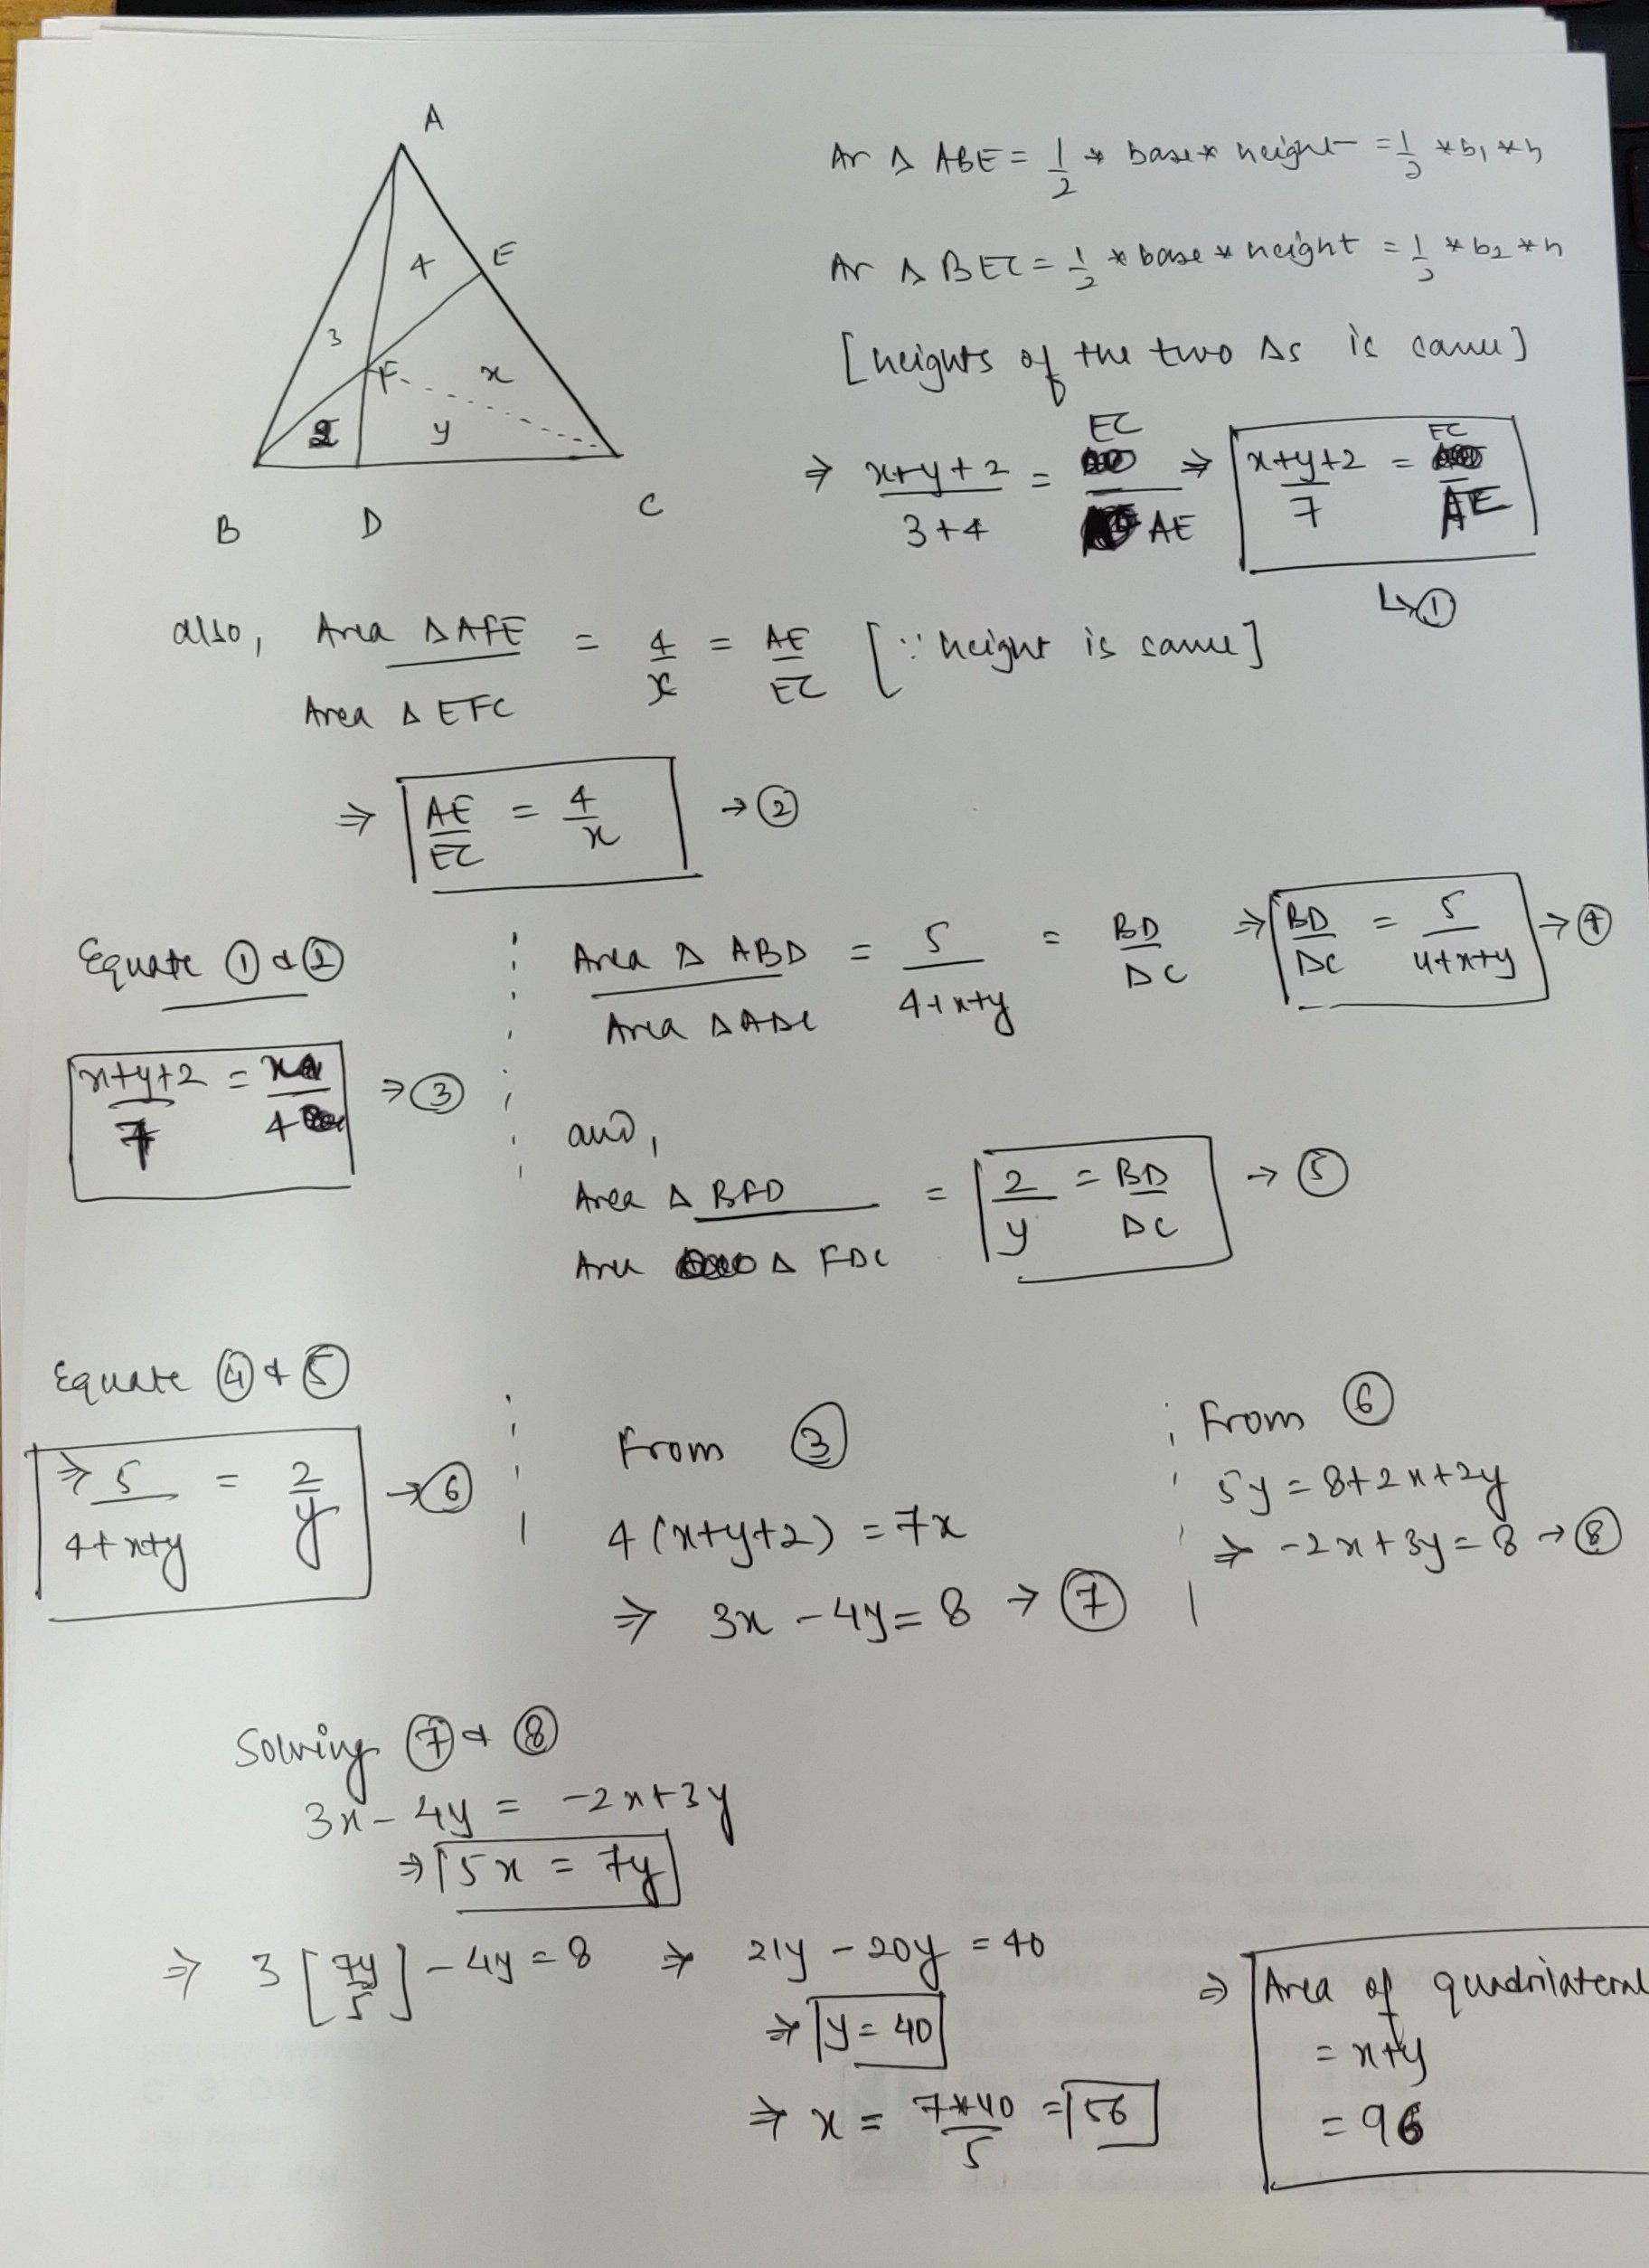 A
4
E
3
F
x
2
y
B
D
C
Ar Δ ABE = 1/2 * base * height = 1/2 * b1 * h
Ar Δ BEC = 1/2 * base * height = 1/2 * b2 * h
[heights of the two Δs is same]
⇒ (x+y+2)/(3+4) = EC/AE ⇒ (x+y+2)/7 = EC/AE
↳ ①
also, Area ΔAFE / Area Δ EFC = 4/x = AE/EC [∵ height is same]
⇒ AE/EC = 4/x → ②
Equate ① &
(x+y+2)/7 = x/4 → ③
Area Δ ABD / Area ΔADC = 5/(4+x+y) = BD/DC ⇒ BD/DC = 5/(4+x+y) → ④
and,
Area Δ BFD / Area Δ FDC = 2/y = BD/DC → ⑤
Equate ④ & ⑤
⇒ 5/(4+x+y) = 2/y → ⑥
From ③
4(x+y+2) = 7x
⇒ 3x - 4y = 8 → ⑦
From ⑥
5y = 8+2x+2y
⇒ -2x+3y = 8 → ⑧
Solving ⑦ & ⑧
3x - 4y = -2x+3y
⇒ 5x = 7y
⇒ 3[7y/5] - 4y = 8 ⇒ 21y - 20y = 40
⇒ y = 40
⇒ x = 7*40/5 = 56
⇒ Area of quadrilateral
= x+y
= 96